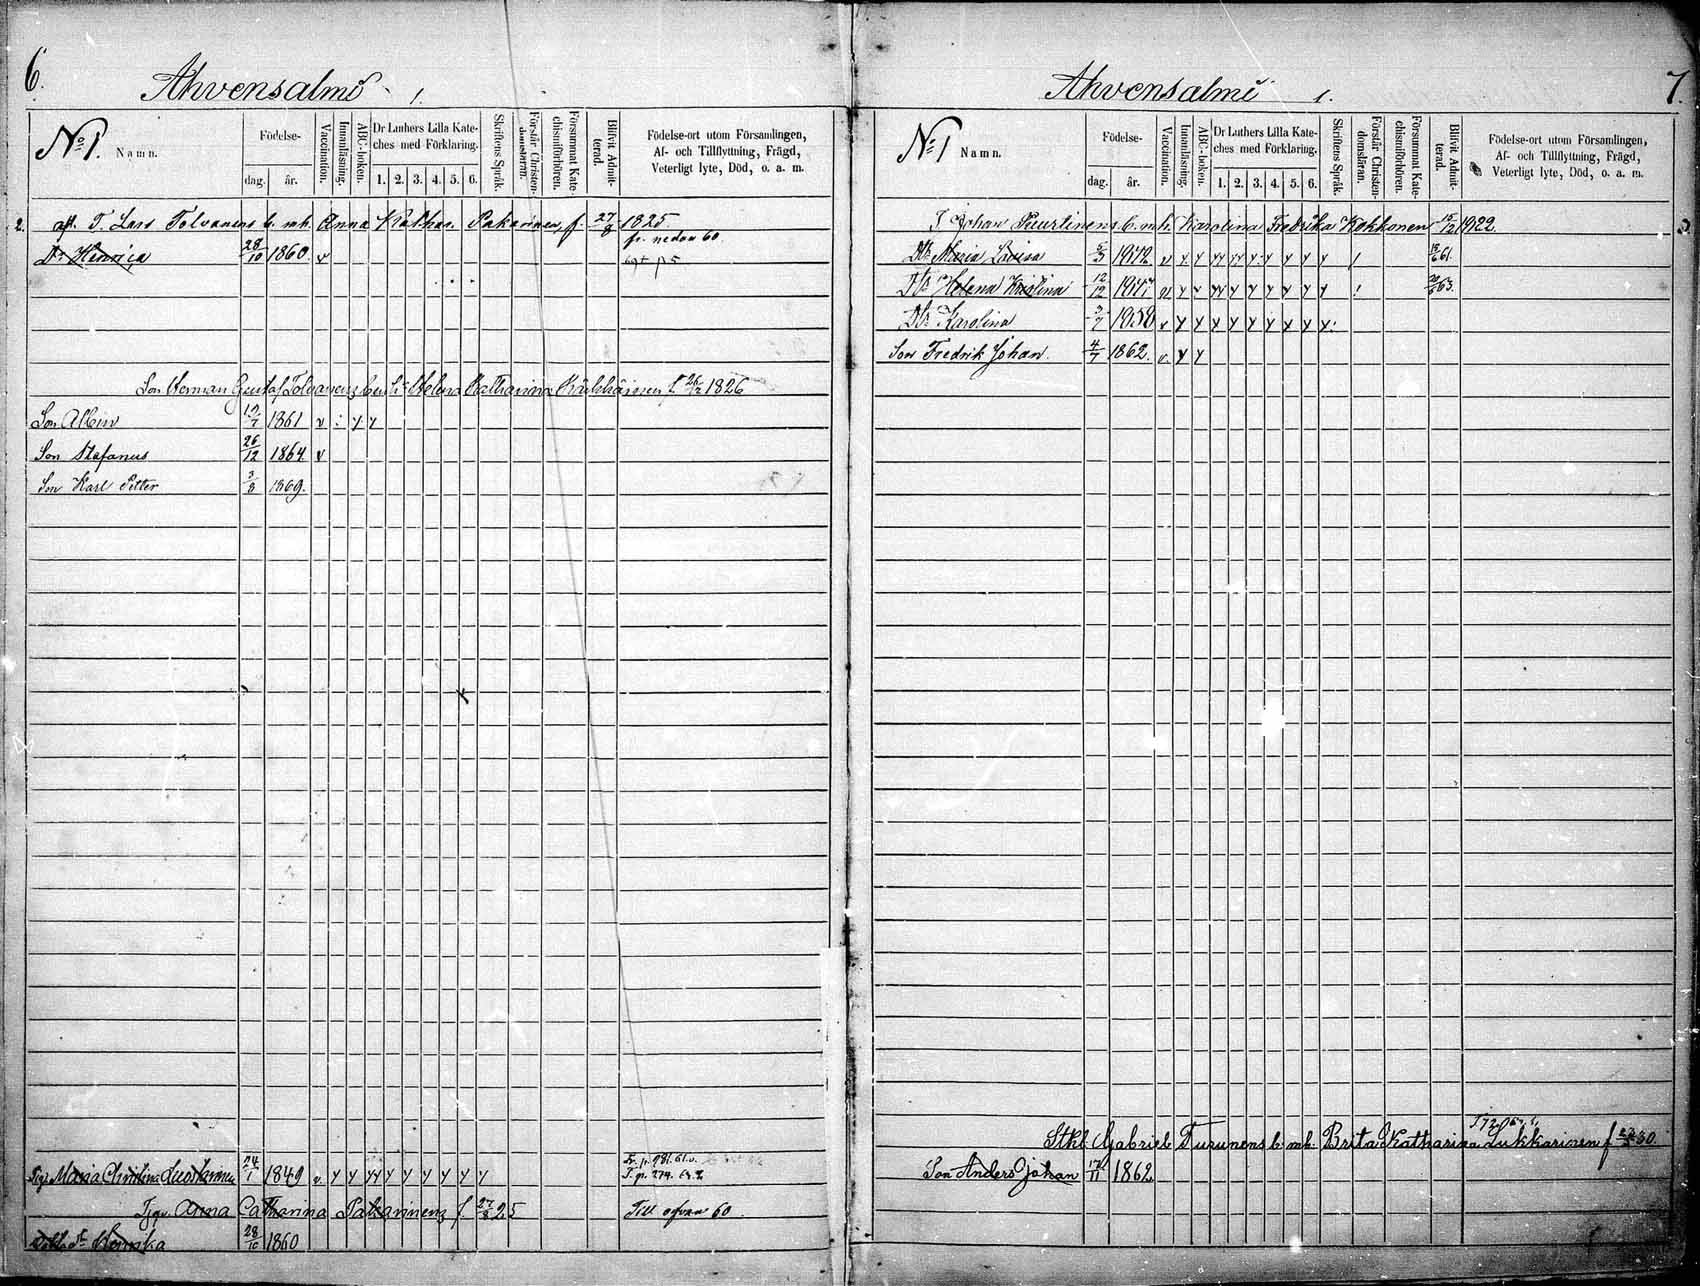 6.
Ahvensalmi 1.
No 1. Namn.
Födelse-
dag. år.
Vaccination.
Innanläsning.
ABC-boken.
Dr Luthers Lilla Kate-
ches med Förklaring.
1. 2. 3. 4. 5. 6.
Skriftens Språk.
Förstår Christen-
domsläran.
Försummat Kate-
chismiförhören.
Blifvit Admit-
terad.
Födelse-ort utom Församlingen,
Af- och Tillflyttning, Frägd,
Veterligt lyte, Död, o. a. m.
2. T. Lars Tolvanens b. mh. Anna Kathar. Pakarinen f. 27/8 1825
fr. nedan 60.
Dr Henrica 28/10 1860. v
Son Herman Gustaf Tolvanens Helena Katharina f. 26/2 1826
Son Albin 19/7 1861 v : y y
Son Stefanus 26/12 1864 v
Son Karl Petter 3/3 1869.
Maria Christina 24/1 1849 v. y y yy y y y y y
Tjqv. Anna Catharina Pakarinenz f. 27/8 25 Till ofvan 60.
28/10 1860
7.
Ahvensalmi 1.
No 1 Namn.
Födelse-
dag. år.
Vaccination.
Innanläsning.
ABC-boken.
Dr Luthers Lilla Kate-
ches med Förklaring.
1. 2. 3. 4. 5. 6.
Skriftens Språk.
Förstår Christen-
domsläran.
Försummat Kate-
chismiförhören.
Blifvit Admit-
terad.
Födelse-ort utom Församlingen,
Af- och Tillflyttning, Frägd,
Veterligt lyte, Död, o. a. m.
Johan Puurtinens b. mh. Karolina Fredrika Kokkonen 15/12 1822
Dtr Maria Lovisa 5/3 v y y yy yy y y y y y / 61.
Dtr Helena Kristina 12/12 v y v yy y y y y y y ! 63.
Dtr Karolina 3/7 1858 v y y y y y y y y y:
Son Fredrik Johan. 4/7 1862. v. y y
Stkl Gabriel Turunens b. mh. Brita Katharina Lukkarinen f 30.
Son Anders Johan 17/11 1862